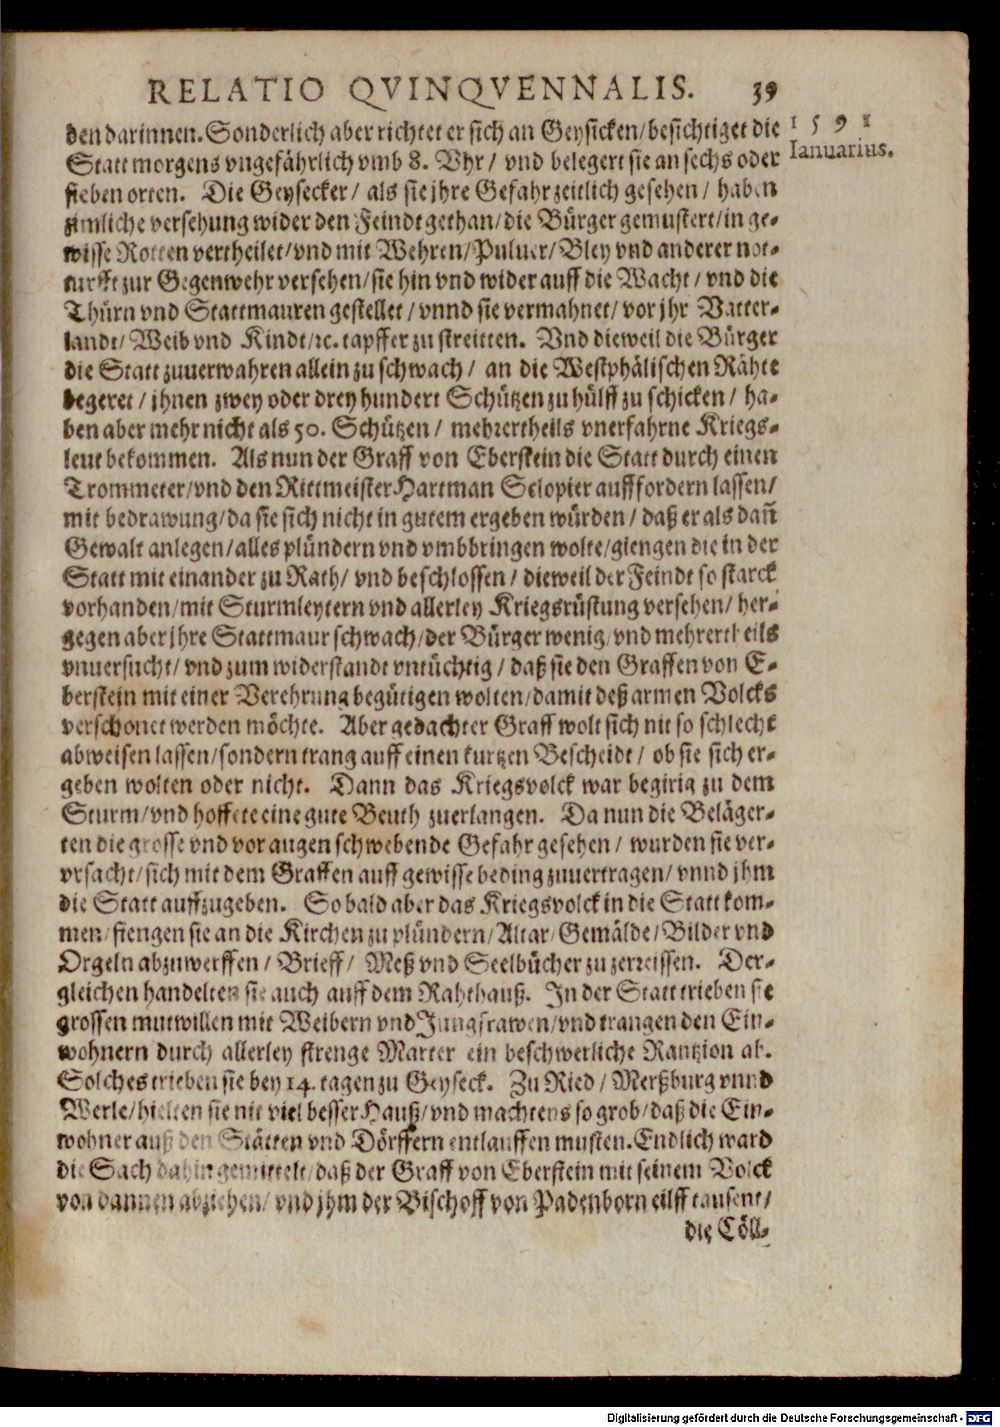 RELATIO QVINQVENNALIS. 39
1591
Ianuarius.
den darinnen. Sonderlich aber richtet er sich an Geysicken/ besichtiget die
Statt morgens vngefährlich vmb 8. Vhr/ vnd belegert sie an sechs oder
sieben orten. Die Geysecker/ als sie jhre Gefahr zeitlich gesehen/ haben
zimliche versehung wider den Feindt gethan/ die Bürger gemustert/ in ge-
wisse Rotten vertheilet/ vnd mit Wehren/ Puluer/ Bley vnd anderer not-
turfft zur Gegenwehr versehen/ sie hin vnd wider auff die Wacht/ vnd die
Thürn vnd Stattmauren gestellet/ vnnd sie vermahnet/ vor jhr Vatter-
landt/ Weib vnd Kindt/ ꝛc. tapffer zu streitten. Vnd dieweil die Bürger
die Statt zuuerwahren allein zu schwach/ an die Westphälischen Rähte
begeret/ jhnen zwey oder drey hundert Schützen zu hülff zu schicken/ ha-
ben aber mehr nicht als 50. Schützen/ mehrertheils vnerfahrne Kriegs-
leut bekommen. Als nun der Graff von Eberstein die Statt durch einen
Trommeter/ vnd den Rittmeister Hartman Selopier auffordern lassen/
mit bedrawung/ da sie sich nicht in gutem ergeben würden/ daß er als dañ
Gewalt anlegen/ alles plündern vnd vmbbringen wolte/ giengen die in der
Statt mit einander zu Rath/ vnd beschlossen/ dieweil der Feindt so starck
vorhanden/ mit Sturmleytern vnd allerley Kriegsrüstung versehen/ her-
gegen aber jhre Stattmaur schwach/ der Bürger wenig/ vnd mehrertheils
vnuersucht/ vnd zum widerstandt vntüchtig/ daß sie den Graffen von E-
berstein mit einer Verehrung begütigen wolten/ damit deß armen Volcks
verschonet werden möchte. Aber gedachter Graff wolt sich nit so schlecht
abweisen lassen/ sondern trang auff einen kurtzen Bescheidt/ ob sie sich er-
geben wolten oder nicht. Dann das Kriegsvolck war begirig zu dem
Sturm/ vnd hoffete eine gute Beuth zuerlangen. Da nun die Beläger-
ten die grosse vnd vor augen schwebende Gefahr gesehen/ wurden sie ver-
vrsacht/ sich mit dem Graffen auff gewisse beding zuuertragen/ vnnd jhm
die Statt auffzugeben. So bald aber das Kriegsvolck in die Statt kom-
men/ fiengen sie an die Kirchen zu plündern/ Altar/ Gemälde/ Bilder vnd
Orgeln abzuwerffen/ Brieff/ Meß vnd Seelbücher zu zerreissen. Der-
gleichen handelten sie auch auff dem Rahthauß. In der Statt trieben sie
grossen mutwillen mit Weibern vnd Jungfrawen/ vnd trangen den Ein-
wohnern durch allerley strenge Marter ein beschwerliche Rantzion ab.
Solches trieben sie bey 14. tagen zu Geyseck. Zu Ried/ Merßburg vnnd
Werle/ hielten sie nit viel besser Hauß/ vnd machtens so grob/ daß die Ein-
wohner auß den Stätten vnd Dörffern entlauffen musten. Endlich ward
die Sach dahin gemittelt/ daß der Graff von Eberstein mit seinem Volck
von dannen abziehen/ vnd jhm der Bischoff von Padenborn eilff tausent/
die Cöll-
Digitalisierung gefördert durch die Deutsche Forschungsgemeinschaft - DFG